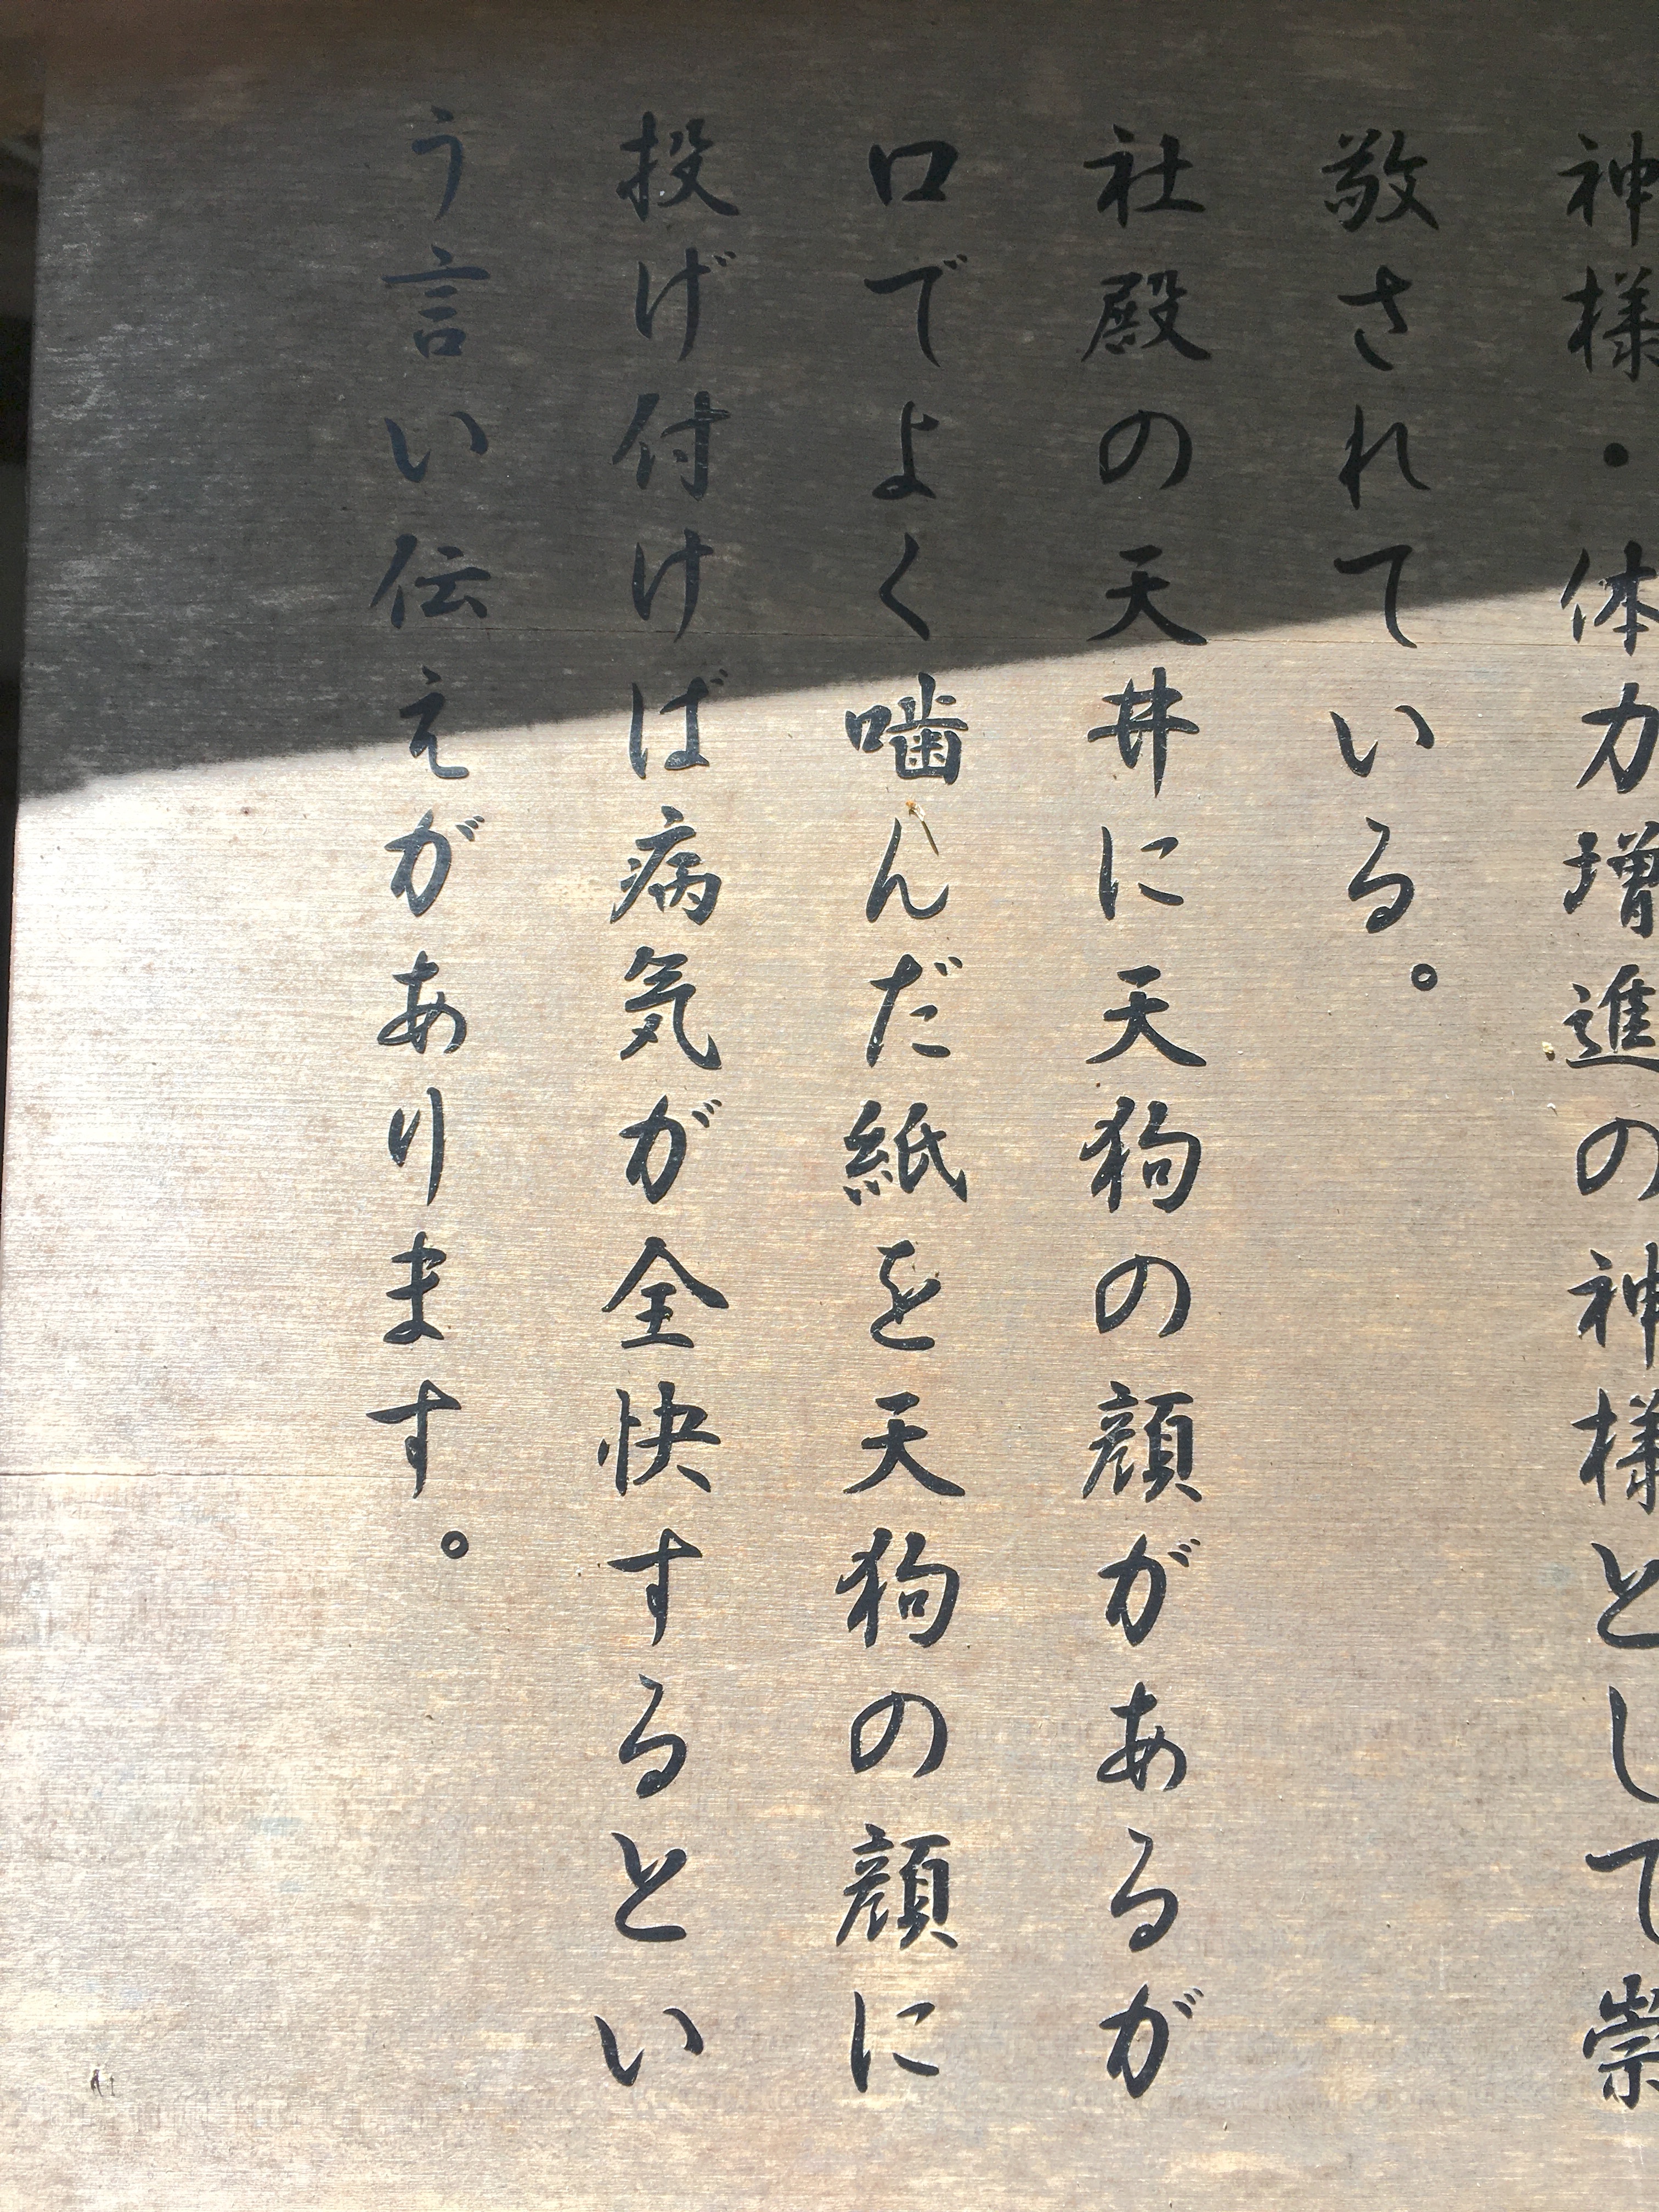 神様・体力増進の神様として崇
敬されている。
社殿の天井に天狗の顔があるが
口でよく噛んだ紙を天狗の顔に
投げ付けば病気が全快するとい
う言い伝えがあります。